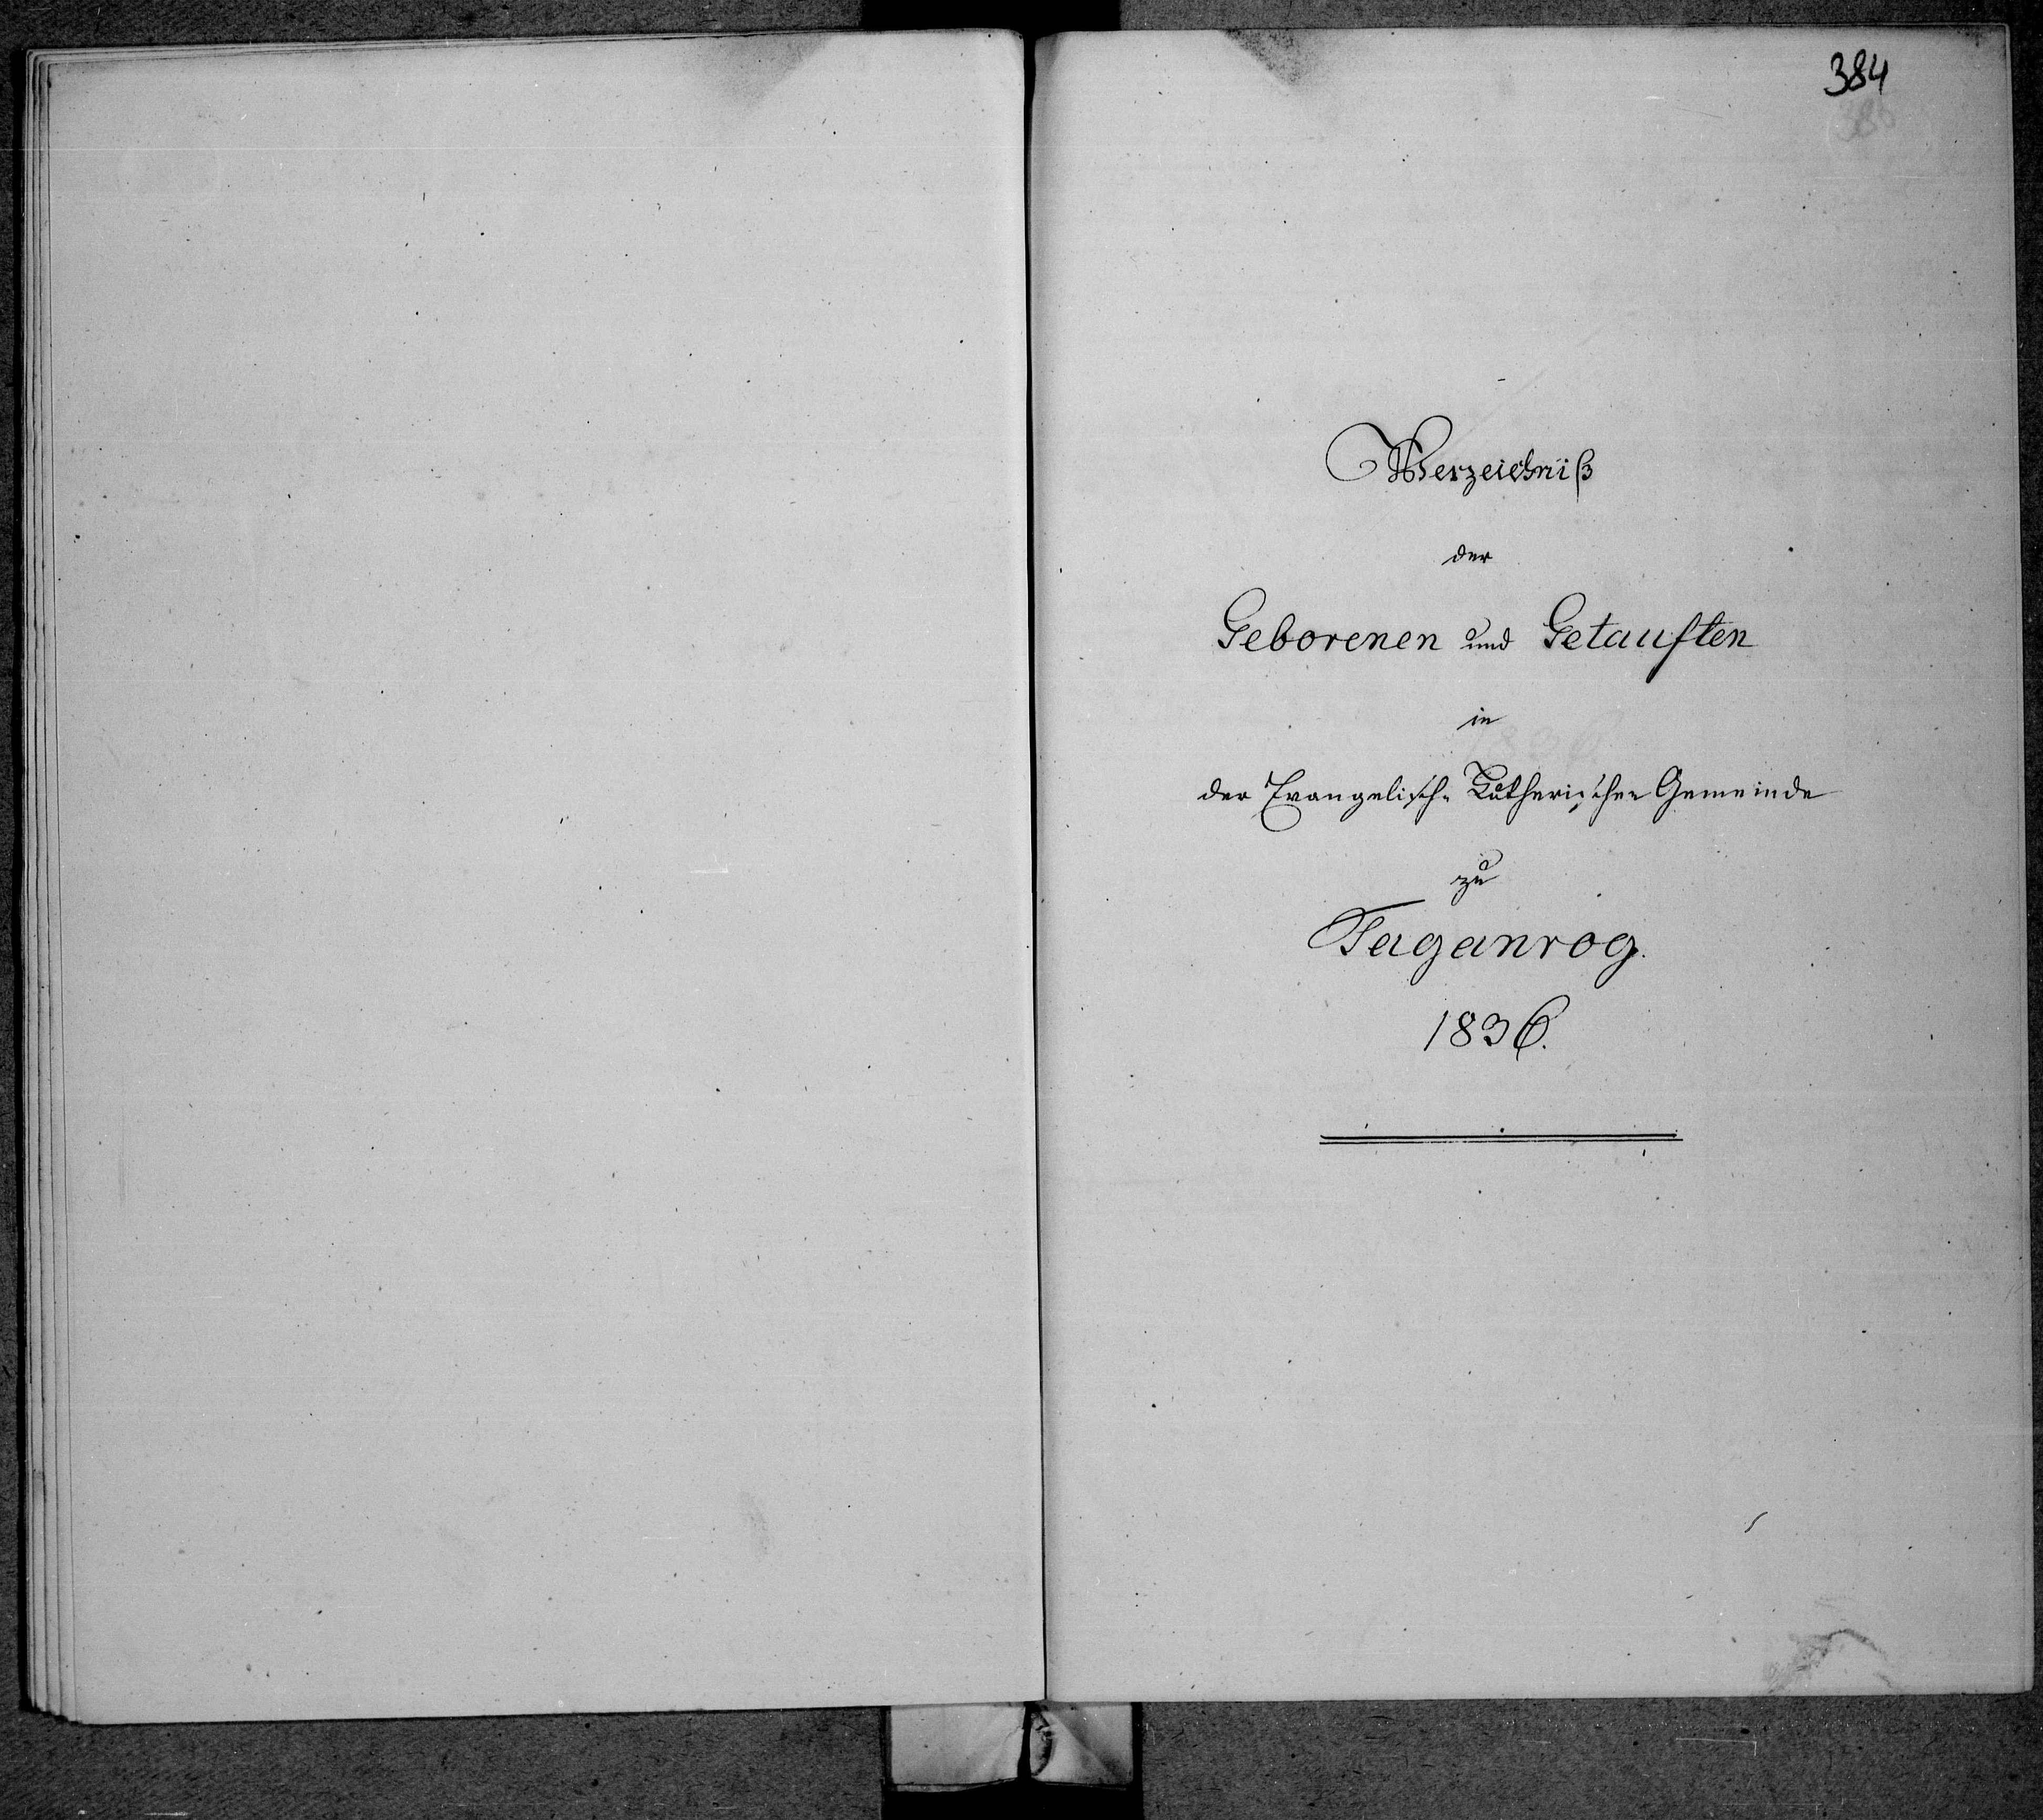 384
Verzeichniß
der
Geborenen und Getauften
in
der Evangelisch-Lutherischen Gemeinde
zu
Taganrog.
1836.